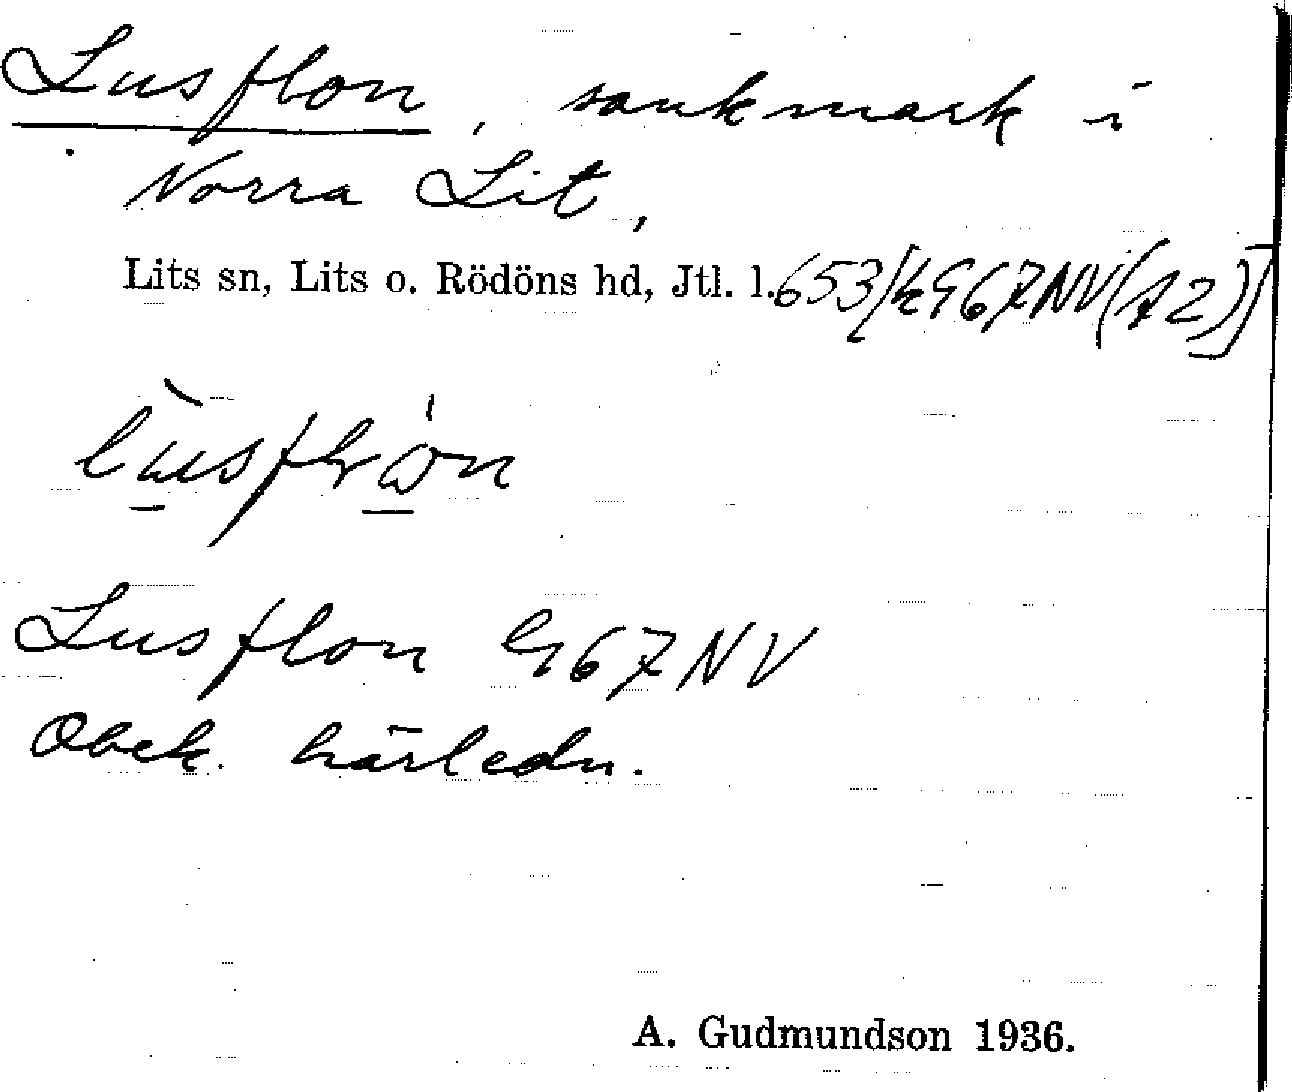 Lusflon, sankmark i
Norra Lit,
Lits sn, Lits o. Rödöns hd, Jtl. l. 653/k G67NV(A2)]
Lusflon G67NV
Obek. härledn.
A. Gudmundson 1936.